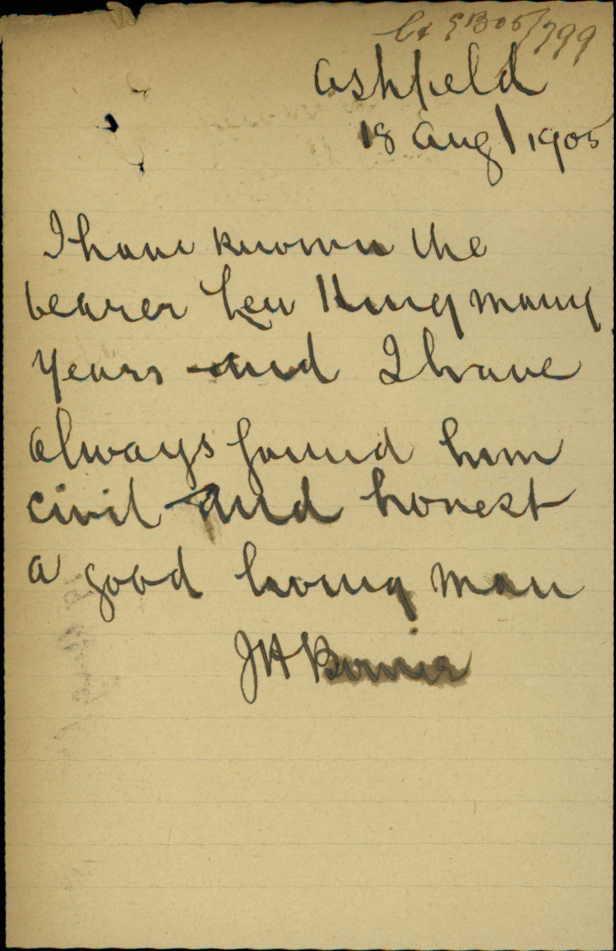 05/799
Ashfield
18 Aug 1905
I have known the
bearer Lew King many
years and I have
always found him
civil and honest
a good living man
J H